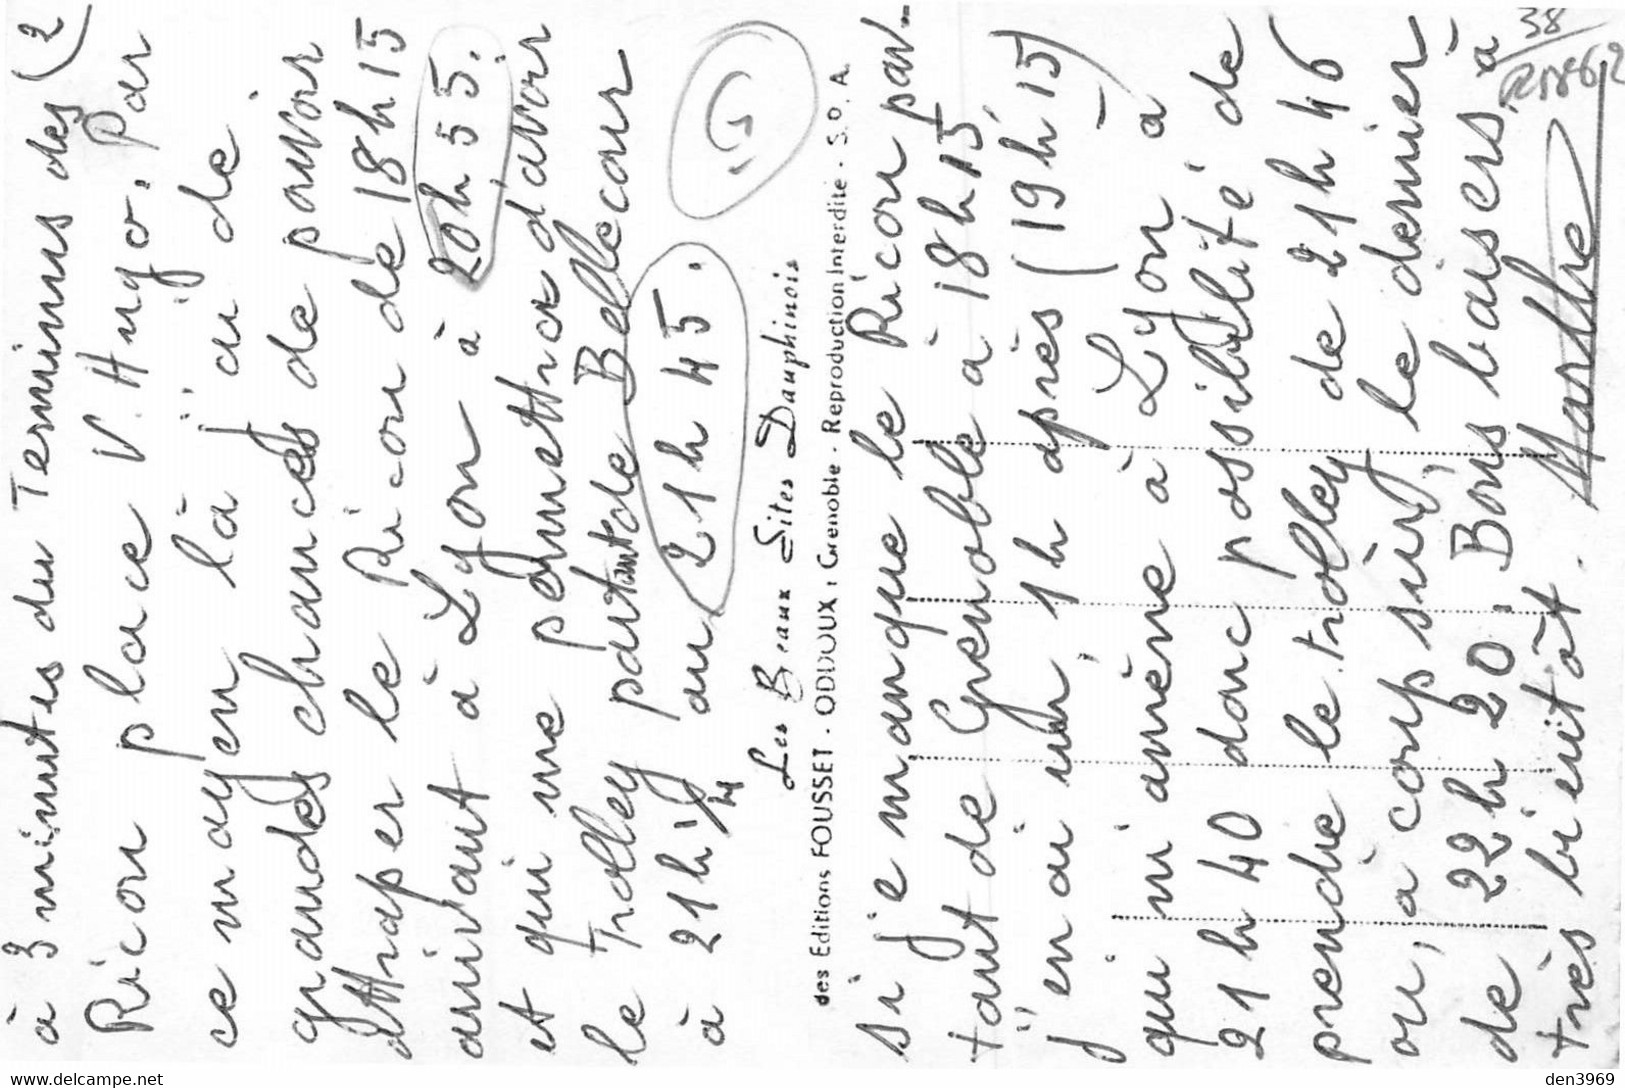 à 3 minutes du Terminus des (2
Ricou place V. Hugo. Par
ce moyen là j'ai de
grandes chances de pouvoir
attraper le Ricou de 18h15
arrivant à Lyon à 20h55.
et qui me permettra d'avoir
le Trolley partant de Bellecour
à 21h 1/4 ou 21h45.
Les Beaux Sites Dauphinois
des Editions FOUSSET - ODDOUX, Grenoble - Reproduction Interdite - S. O. A.
si je manque le Ricou par-
tant de Grenoble à 18h15,
j'en ai un, 1h après (19h15)
qui m'amène à Lyon à
21h40 donc possibilité de
prendre le trolley de 21h46
ou, à coup sûr, le dernier
de 22h20. Bons baisers, à
très bientôt. Marthe
38
www.delcampe.net
den3969